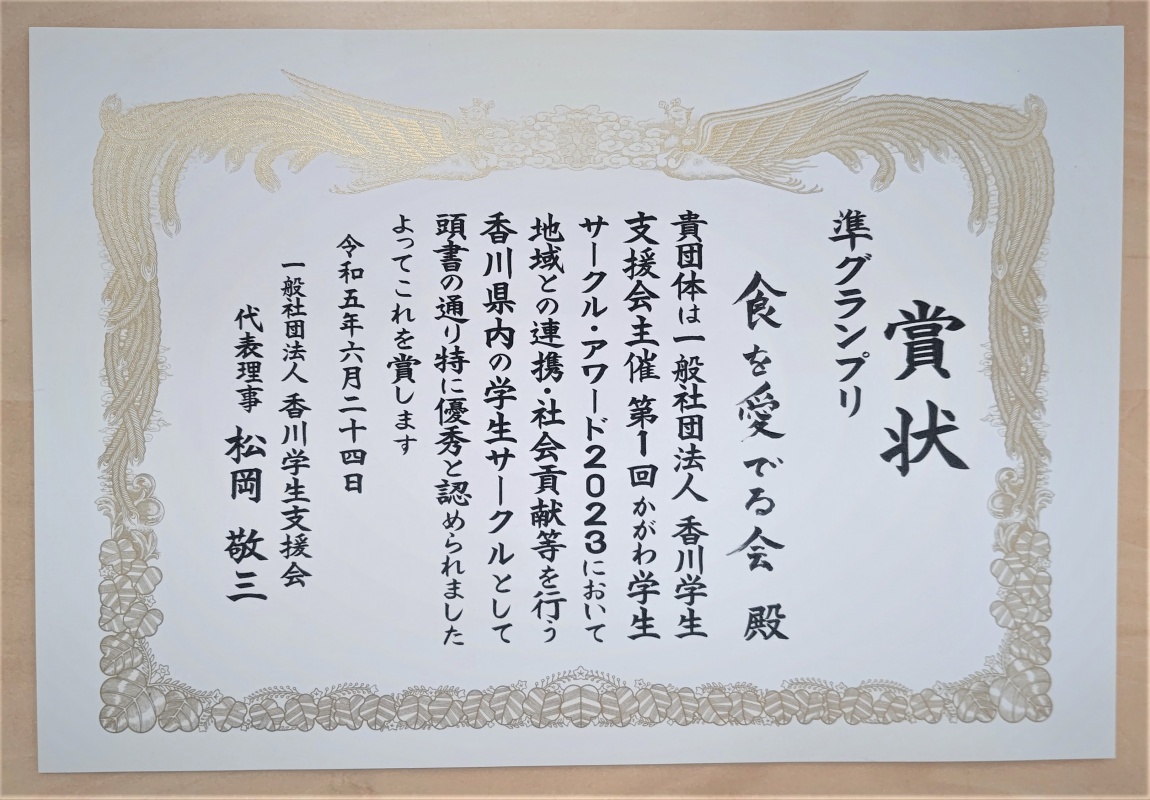 賞状
準グランプリ
食を愛でる会 殿
貴団体は一般社団法人 香川学生
支援会主催 第1回 かがわ学生
サークル・アワード2023において
地域との連携・社会貢献等を行う
香川県内の学生サークルとして
頭書の通り特に優秀と認められました
よってこれを賞します
令和五年六月二十四日
一般社団法人 香川学生支援会
代表理事 松岡 敬三